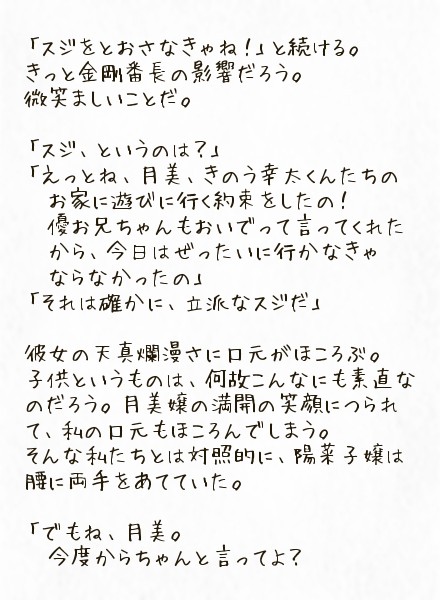 「スジをとおさなきゃね！」と続ける。
きっと金剛番長の影響だろう。
微笑ましいことだ。
「スジ、というのは？」
「えっとね、月美、きのう幸太くんたちの
お家に遊びに行く約束をしたの！
優お兄ちゃんもおいでって言ってくれた
から、今日はぜったいに行かなきゃ
ならなかったの」
「それは確かに、立派なスジだ」
彼女の天真爛漫さに口元がほころぶ。
子供というものは、何故こんなにも素直な
のだろう。月美嬢の満開の笑顔につられ
て、私の口元もほころんでしまう。
そんな私たちとは対照的に、陽菜子嬢は
腰に両手をあてていた。
「でもね、月美。
今度からちゃんと言ってよ？